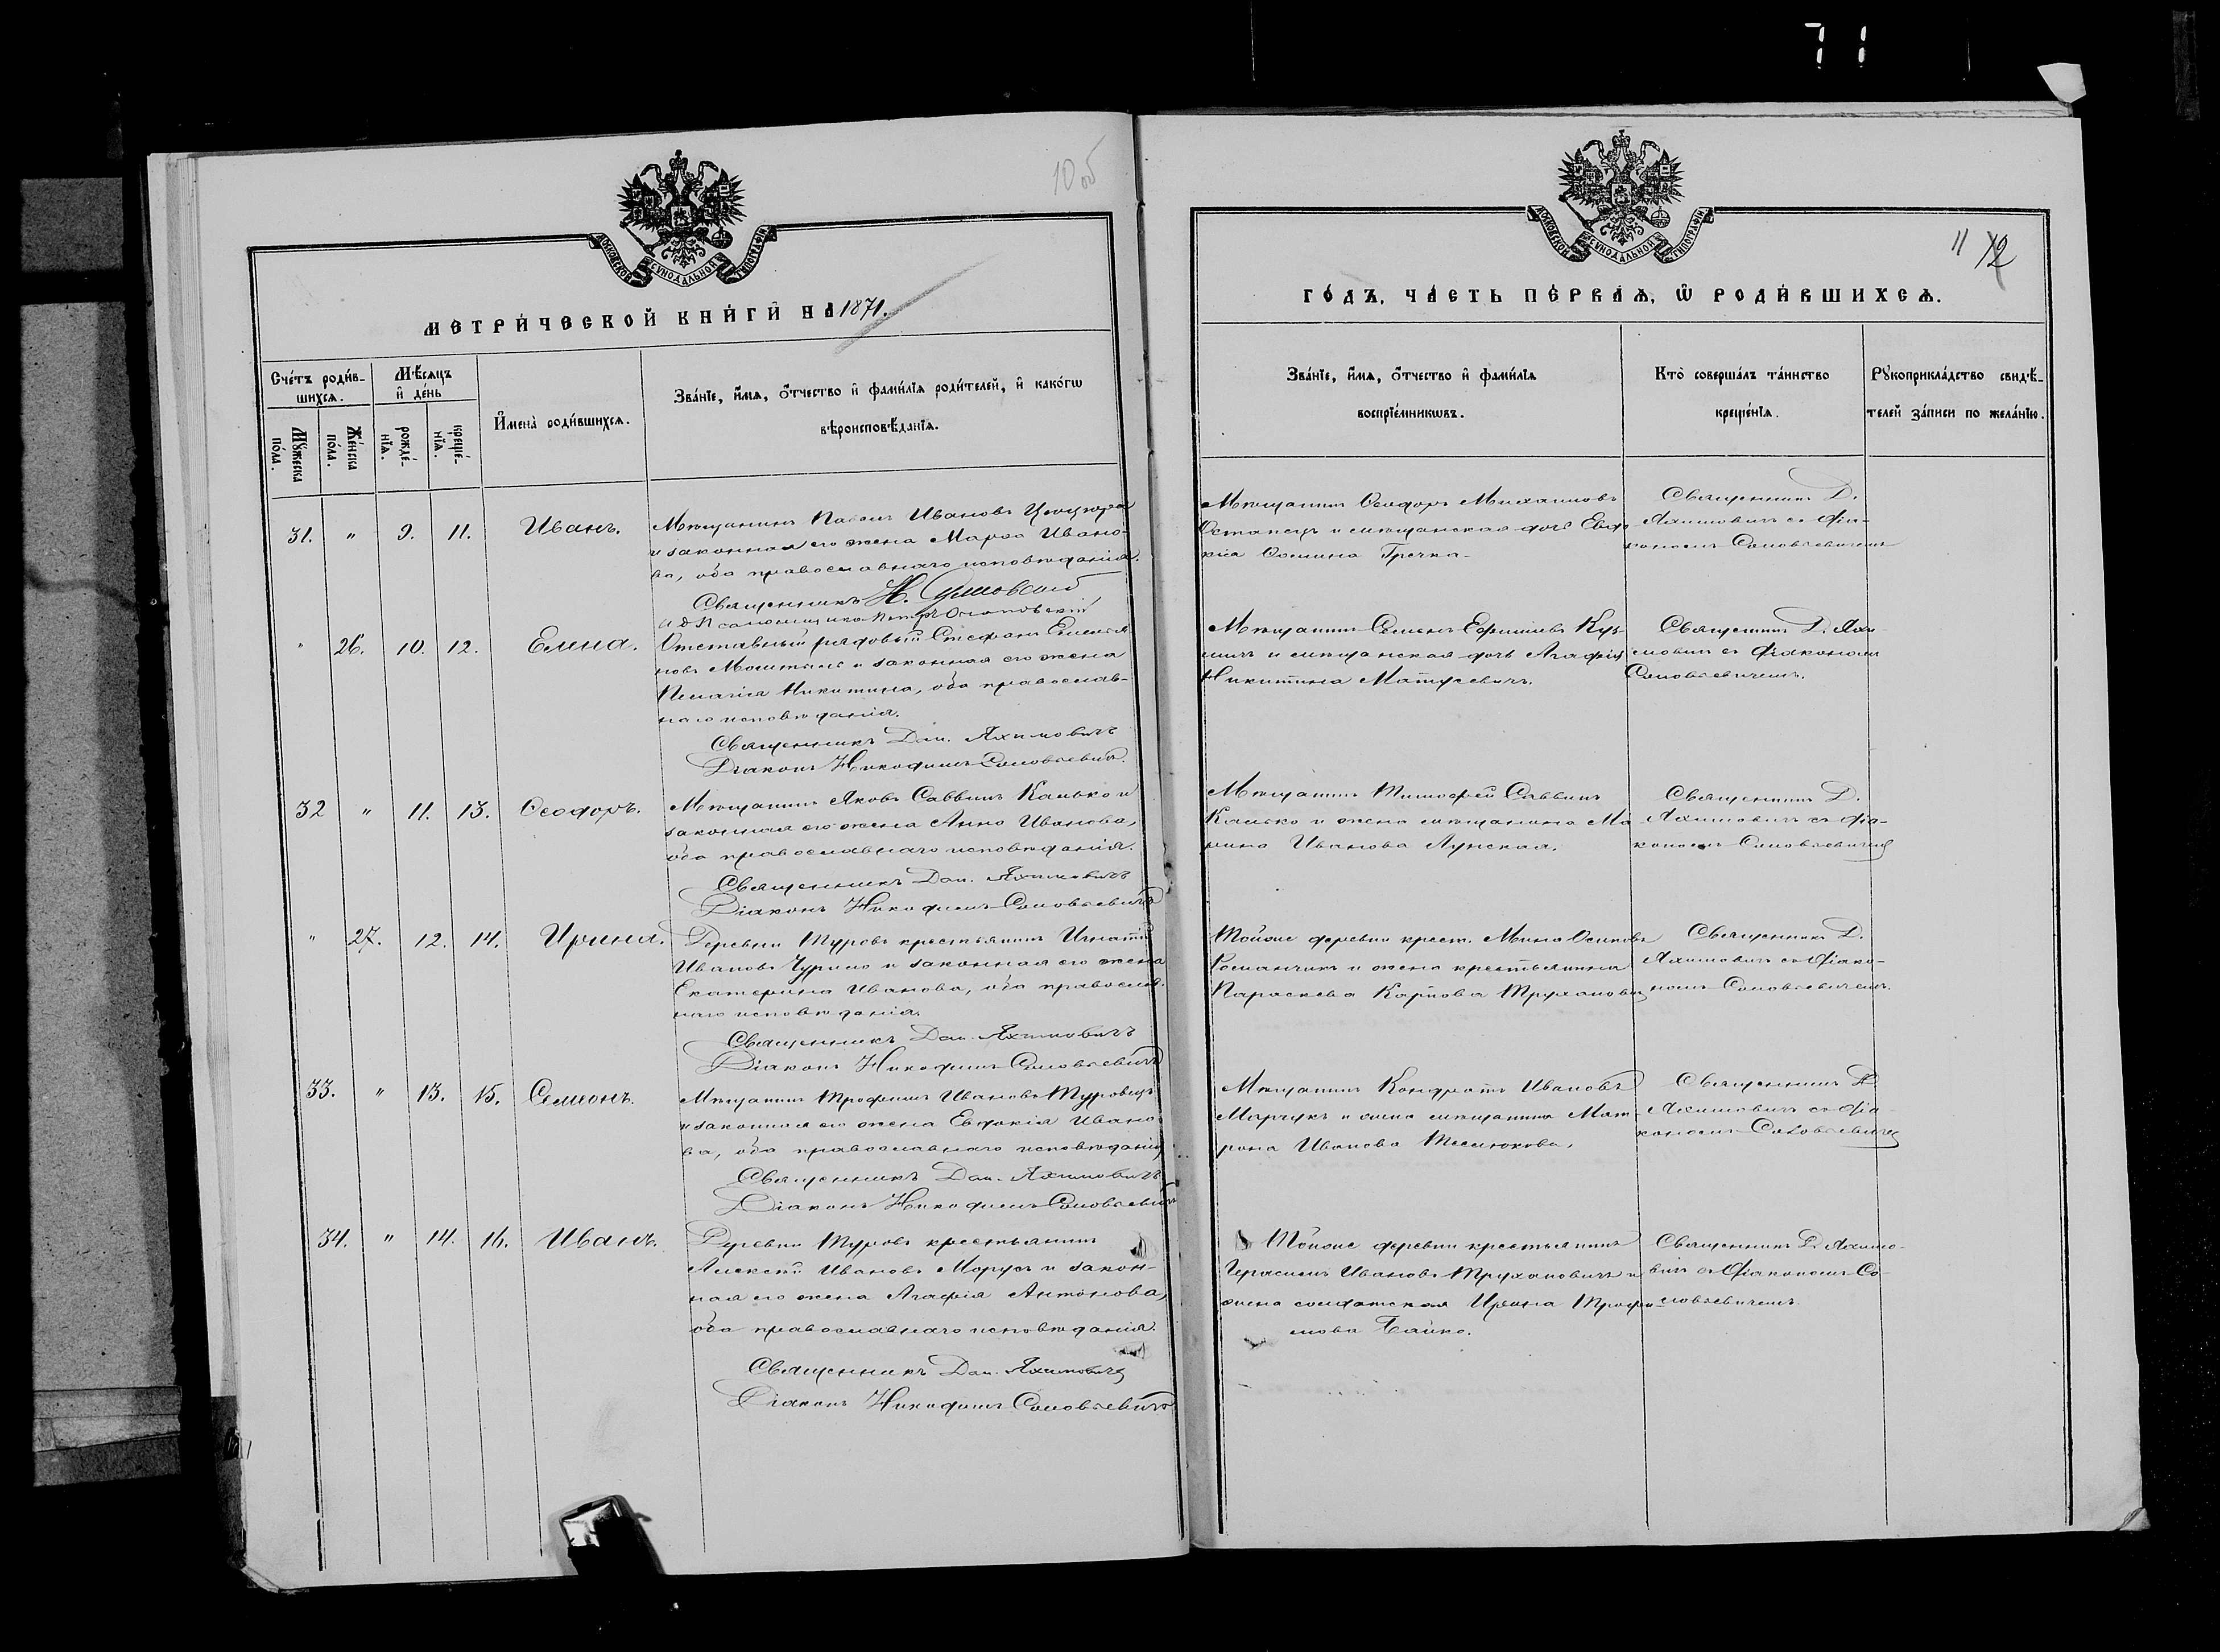 71
10 об
МОСКОВСКОЙ СѴНОДАЛЬНОЙ ТИПОГРАФІИ
МЕТРИ́ЧЕСКОЙ КНИ́ГИ НА 1871.
Сче́тъ роди́в-
шихсѧ.
Мꙋ́жеска
по́ла.
Же́нска
по́ла.
Мѣ́сяцъ
и҆ де́нь
рожде́-
нїѧ.
креще́-
нїѧ.
И҆мена̀ роди́вшихсѧ.
Зва́нїе, и҆́мѧ, ѻ҆́тчество и҆ фами́лїѧ роди́телей, и҆ како́гѡ
вѣроисповѣ́данїѧ.
31. " 9. 11. Иванъ.
Мѣщанинъ Павелъ Ивановъ
и законная его жена Марѳа Ивано-
ва, оба православнаго исповѣданія.
Священникъ Н.
" 26. 10. 12. Елена.
Отставный рядовый Стефанъ Емелья
новъ и законная его жена
Пелагія Никитина, оба православ-
наго исповѣданія.
Священникъ Дан. Яхимовичъ
Діаконъ Никодимъ Соловьевичъ.
32 " 11. 13. Ѳеодоръ.
Мѣщанинъ Яковъ Саввинъ Калько и
законная его жена Анна Иванова,
оба православнаго исповѣданія.
Священникъ Дан. Яхимовичъ
Діаконъ Никодимъ Соловьевичъ
" 27. 12. 14. Ирина.
Деревни Туровъ крестьянинъ Игнатій
Ивановъ Чурило и законная его жена
Екатерина Иванова, оба православ.
наго исповѣданія.
Священникъ Дан. Яхимовичъ
Діаконъ Никодимъ Соловьевичъ
33. " 13. 15. Семеонъ.
Мѣщанинъ Трофимъ Ивановъ Туровецъ
и законная его жена Евдокія Ивано
ва, оба православнаго исповѣданія
Священникъ Дан. Яхимовичъ
Діаконъ Никодимъ Соловьевичъ
34. " 14. 16. Иванъ.
Деревни Туровъ крестьянинъ
Алексѣй Ивановъ Морусъ и закон-
ная его жена Агафія Антонова,
оба православнаго исповѣданія.
Священникъ Дан. Яхимовичъ
Діаконъ Никодимъ Соловьевичъ
11 12
МОСКОВСКОЙ СѴНОДАЛЬНОЙ ТИПОГРАФІИ
ГО́ДЪ, ЧА́СТЬ ПЕ́РВАѦ, Ѿ РОДИ́ВШИХСѦ.
Зва́нїе, и҆́мѧ, ѻ҆́тчество и҆ фами́лїѧ
воспрїе́мникѡвъ.
Кто̀ соверша́лъ та́инство
креще́нїѧ.
Рꙋкоприкла́дство свидѣ́-
телей за́писи по жела́нїю.
Мѣщанинъ Ѳеодоръ Михаиловъ
Остапецъ и мѣщанская дочь Евдо
кіа Ѳомина Гречка.
Священникъ Д.
Яхимовичъ съ діа-
кономъ Соловьевичемъ
Мѣщанинъ Семенъ Ефимовъ Куз-
мичъ и мѣщанская дочь Агафія
Никитина Матусевичъ.
Священникъ Д. Яхи-
мовичъ съ діакономъ
Соловьевичемъ.
Мѣщанинъ Тимофей Саввинъ
Калько и жена мѣщанина Ма
рина Иванова Лунская.
Священникъ Д.
Яхимовичъ съ діа-
кономъ Соловьевичемъ
Тойже деревни крест. Мина Осиповъ
Романчикъ и жена крестьянина
Параскева Карпова Трухановичъ
Священникъ Д.
Яхимовичъ съ діако-
номъ Соловьевичемъ.
Мѣщанинъ Кондратъ Ивановъ
Марчукъ и жена мѣщанина Мат-
рона Иванова Теслюкова.
Священникъ Д.
Яхимовичъ съ діа-
кономъ Соловьевичемъ
Тойже деревни крестьянинъ
Герасимъ Ивановъ Трухановичъ и
жена солдатская Ирина Трофи
мова Байко.
Священникъ Д. Яхимо-
вичъ съ діакономъ Со-
ловьевичемъ.